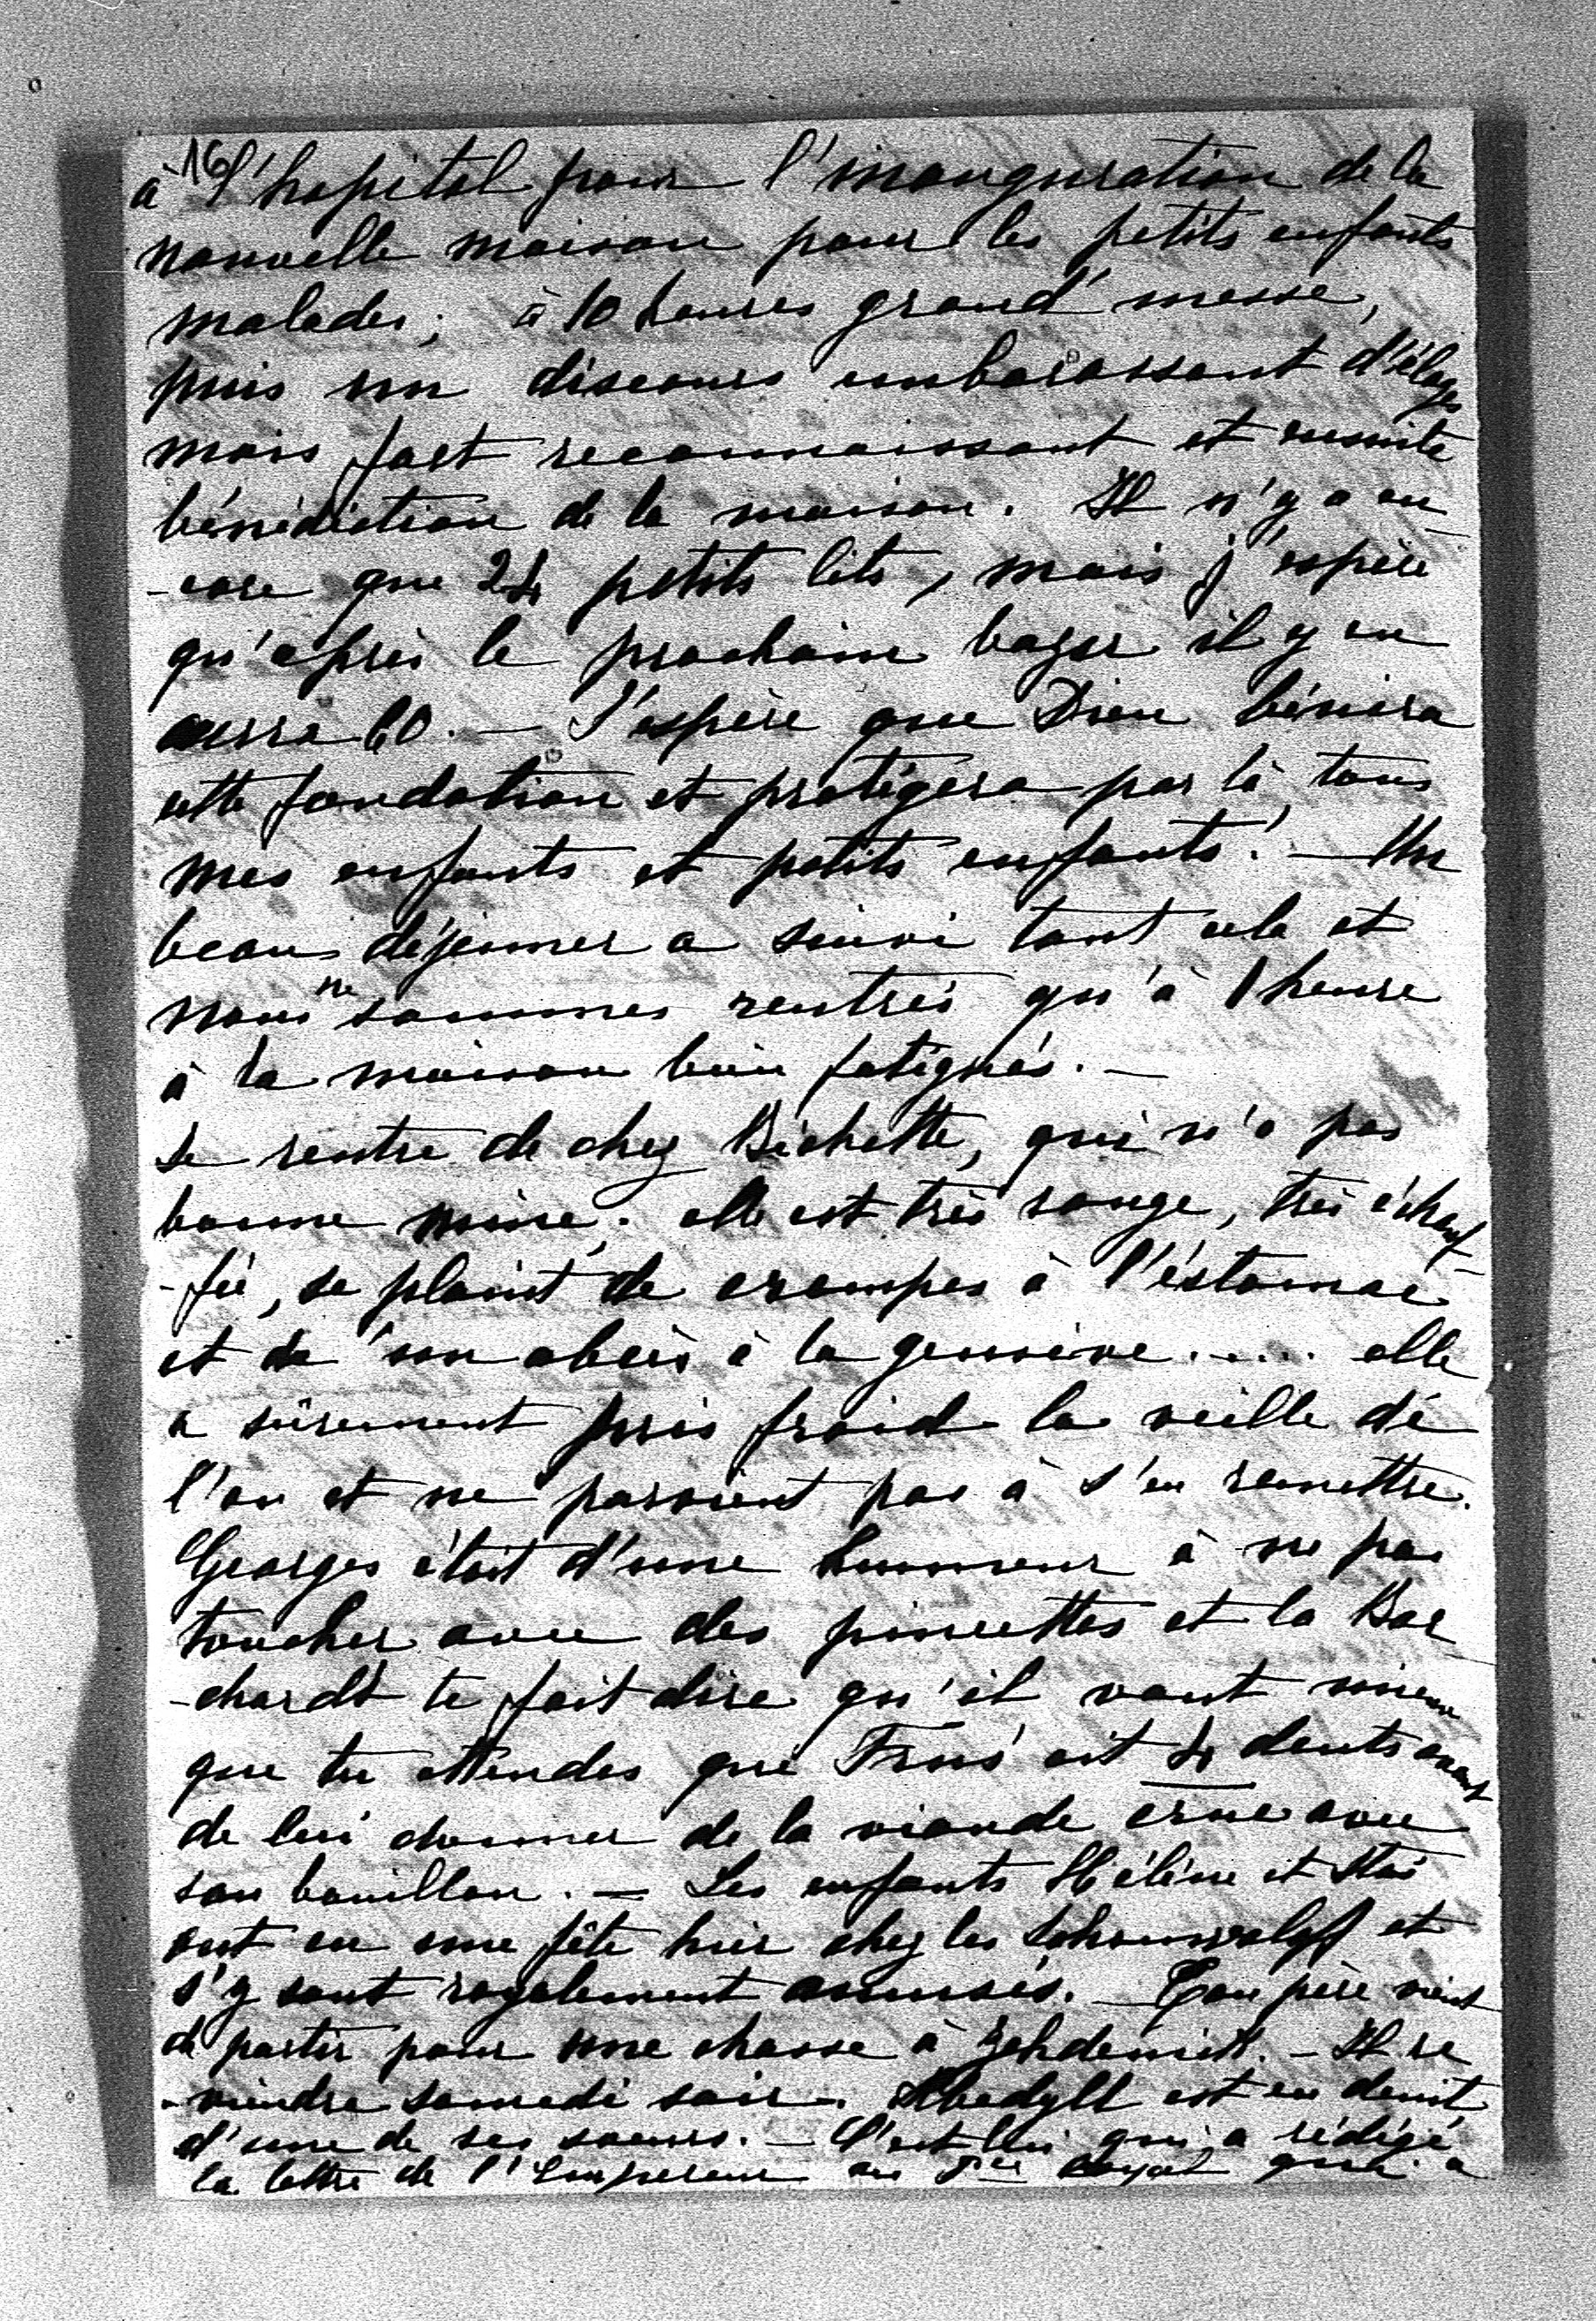 16
à l'hopital pour l'inauguration de la
nouvelle maison pour les petits enfants
malades; à 10 heures grand' messe,
puis un discours embarassant d'éloges
mais fort reconnaissant et ensuite
bénédiction de la maison. Il n'y a en-
-core que 24 petits lits, mais j'espère
qu'après le prochain bazar il y en
aura 60. — J'espère que Dieu bénira
cette fondation et protégera par là, tous
mes enfants et petits enfants! — Un
beau déjeuner a suivi tout cela et
nous ne sommes rentrés qu'à 1 heure
à la maison bien fatigués. —
Je rentre de chez Bichette, qui n'a pas
bonne mine; elle est très rouge, très échauf-
-fée, se plaint de crampes à l'éstomac
et de son abcès à la gencive..... elle
a sûrement pris froid la veille de
l'an et ne parvient pas à s'en remettre.
Georges était d'une humeur à ne pas
toucher avec des pincettes et la Bor
-chardt te fait dire qu'il vaut mieux
que tu attendes que ait 4 dents avant
de lui donner de la viande crue avec
son bouillon. — Les enfants Hélène et Stas
ont eu une fête hier chez les et
s'y sont royalement amusés. — Ton père vient
de partir pour une chasse à Zehdenick. — Il re
-viendra samedi soir. est en deuil
d'une de ses soeurs. — C'est lui qui a rédigé
la lettre de l'Empereur au qui a